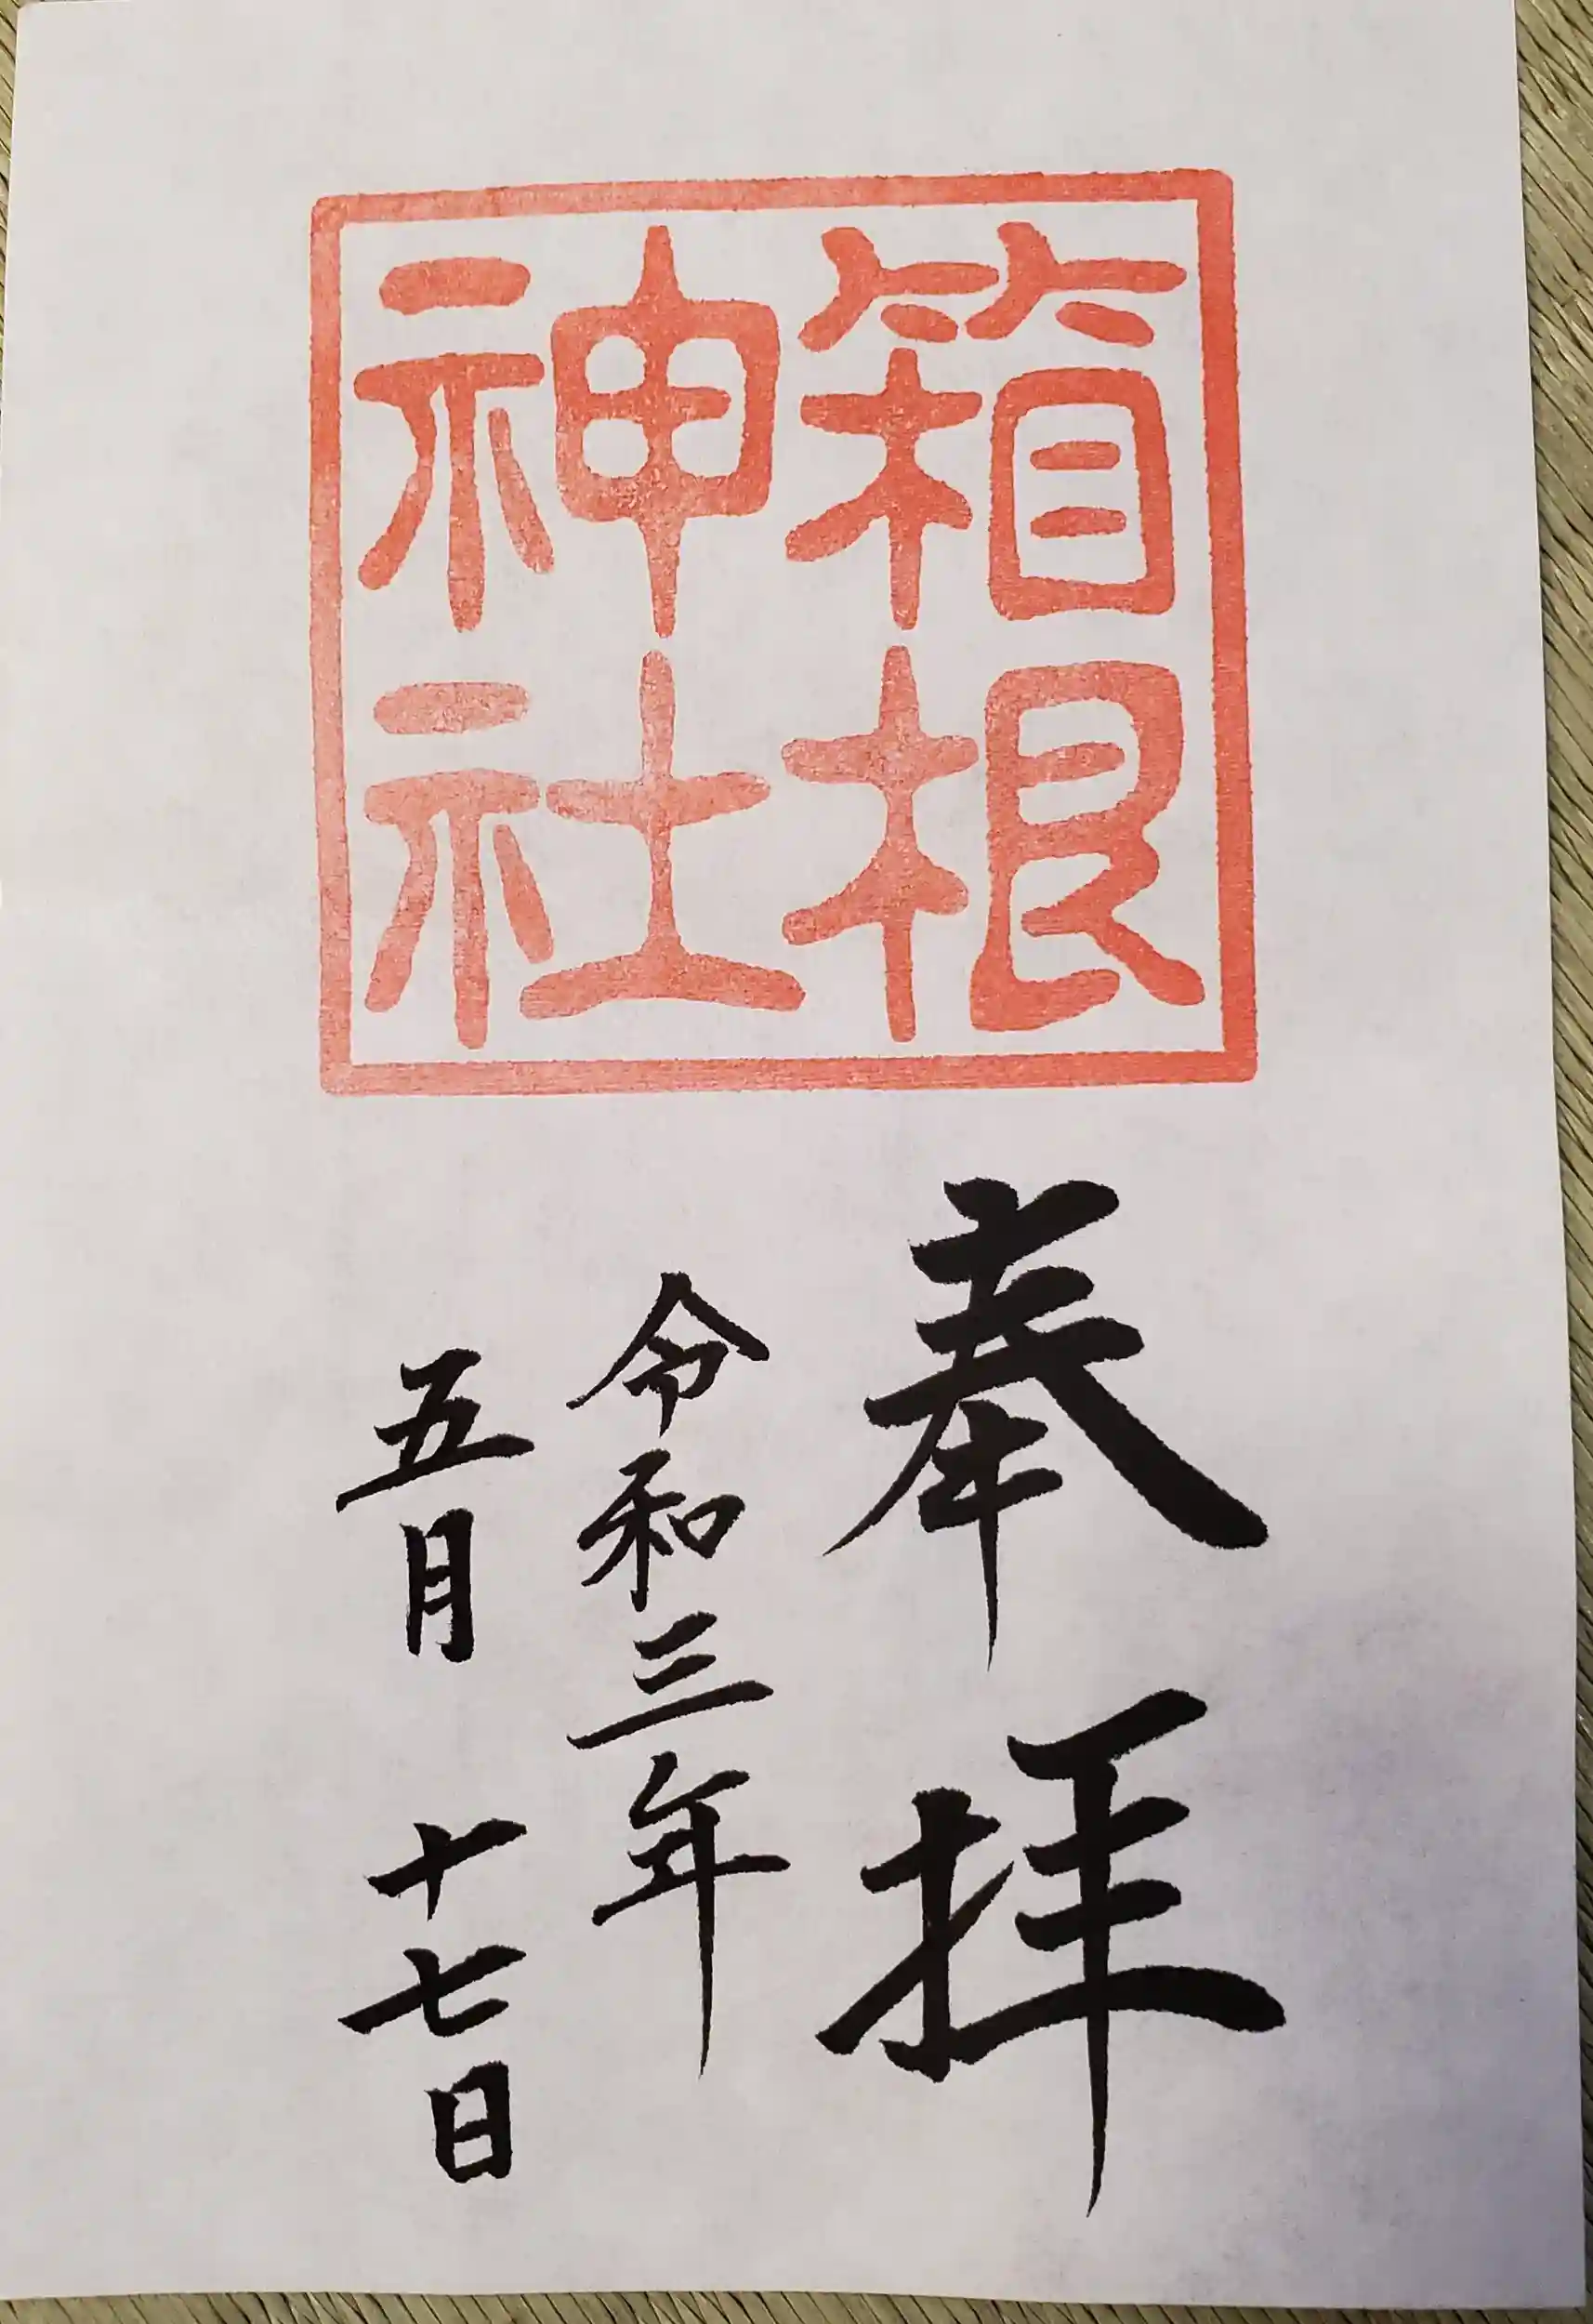 箱根
神社
奉拝
令和三年
五月十七日